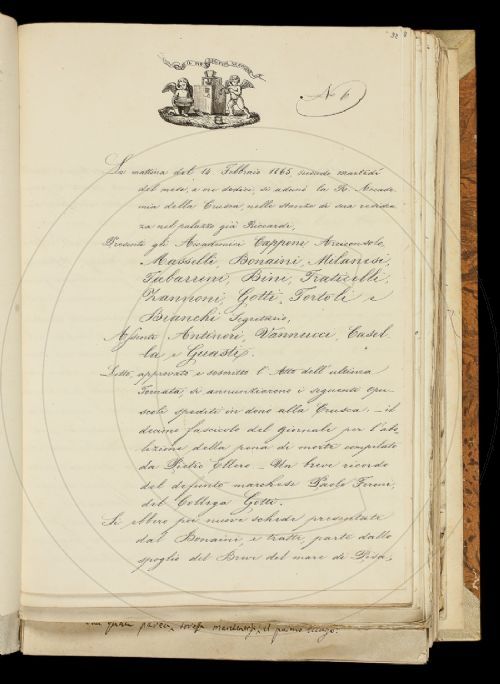 92
N 6
La mattina del 14 Febbraio 1865, secondo martedì
del mese, a ore dodici, si adunò la R. Accade-
mia della Crusca, nelle stanze di sua residen-
za nel palazzo già Riccardi,
Presenti gli Accademici Capponi Arciconsolo,
Masselli, Bonaini, Milanesi,
Tabarrini, Bini, Fraticelli,
Zannoni, Gotti, Tortoli e
Bianchi Segretario,
Assenti Antinori, Vannucci, Casel-
la e Guasti.
Letto, approvato e soscritto l'Atto dell'ultima
Tornata, si annunziarono i seguenti Opu-
scoli spediti in dono alla Crusca. — il
decimo fascicolo del Giornale per l'abo-
lizione della pena di morte compilato
da Pietro Ellero — Un breve ricordo
del defunto marchese Paolo Feroni,
del Collega Gotti.
Si ebbero poi nuove schede presentate
dal Bonaini, e tratte parte dallo
spoglio del Breve del mare di Pisa,
il primo luogo.